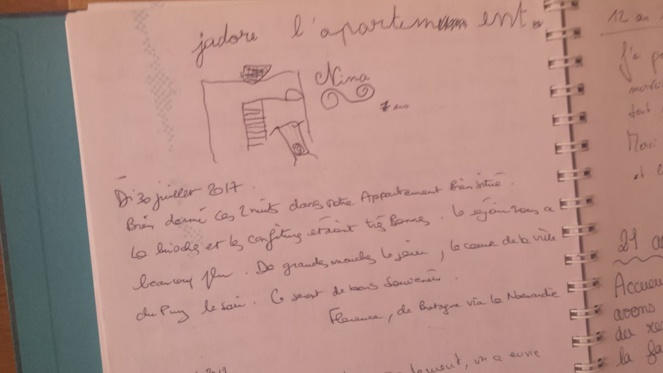 jadore l'apartement.
Nina
7 ans
Di 30 juillet 2017.
Bien dormi ces 2 nuits dans votre Appartement Bien situé.
La brioche et les confitures étaient très Bonnes. Le séjour nous a
beaucoup plu. De grandes marches le jour, le coeur de la ville
du Puy le soir. Ce seront de bons souvenirs.
Florence, de Bretagne via la Normandie
on a
12 an
J'ai
tout
Merci
et
21 a
Accueil
avons
la fa